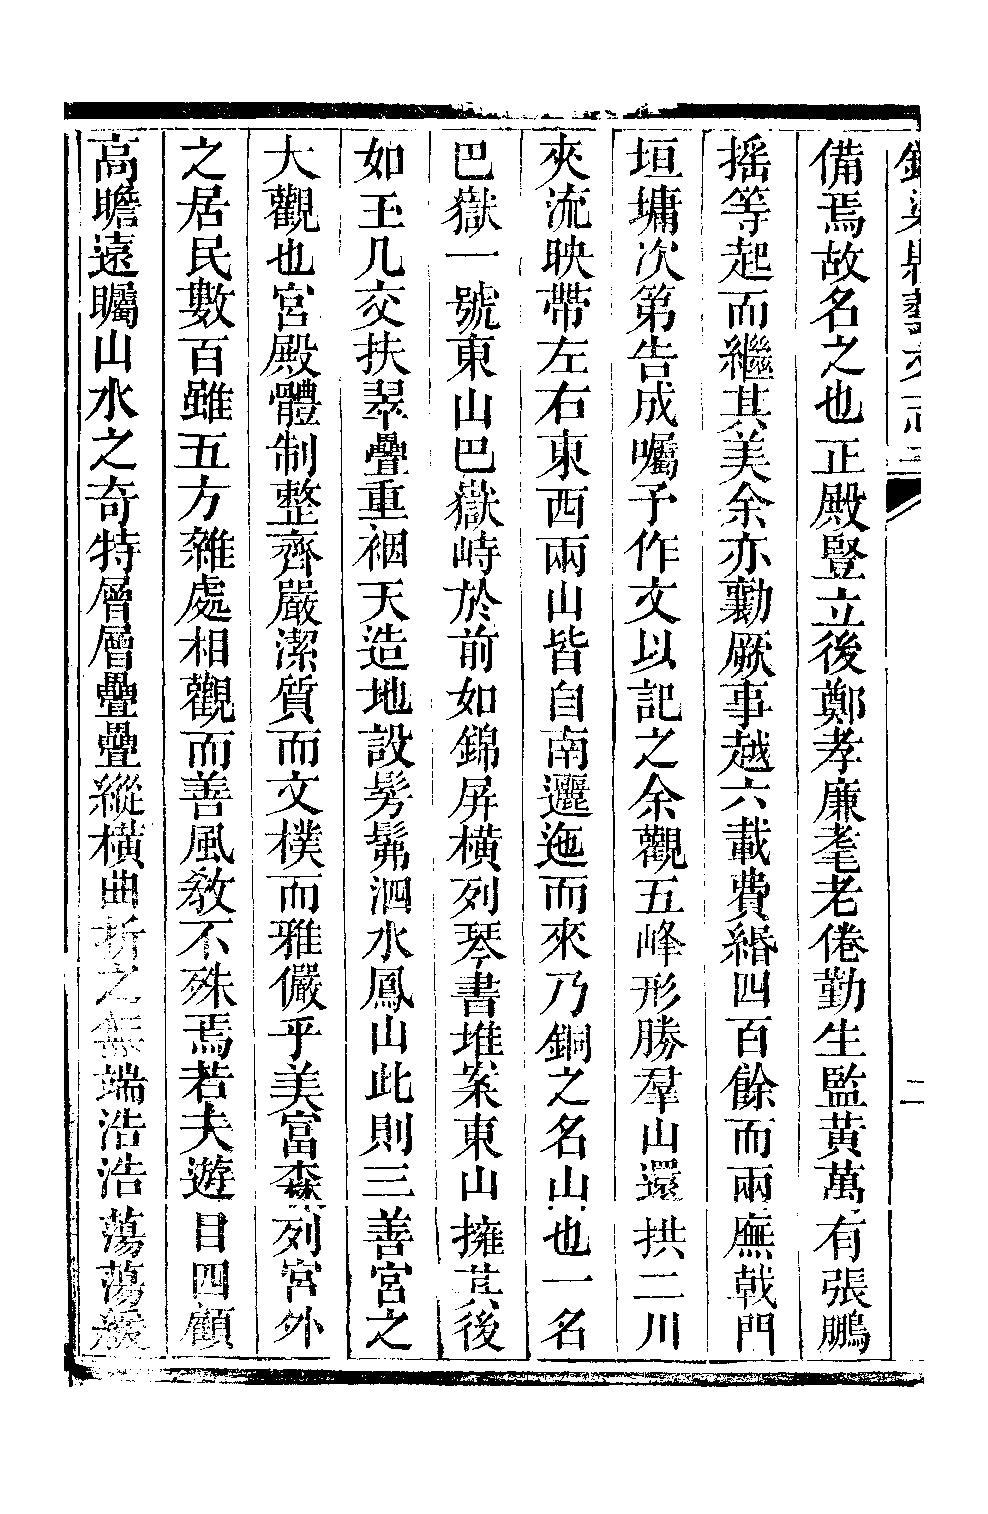 備焉故名之也正殿豎立後鄭孝廉耄老倦勤生監黃萬有張鵬
搖等起而繼其美余亦勷厥事越六載費緡四百餘而兩廡戟門
垣墉次第告成囑予作文以記之余觀五峰形勝羣山還拱二川
夾流映帶左右東西兩山皆自南邐迤而來乃銅之名山也一名
巴嶽一號東山巴嶽峙於前如錦屏橫列琴書堆案東山擁其後
如玉几交扶翠疊重裀天造地設髣髴泗水鳳山此則三善宮之
大觀也宮殿體制整齊嚴潔質而文樸而雅儼乎美富森列宮外
之居民數百雖五方雜處相觀而善風敎不殊焉若夫遊目四顧
高瞻遠矚山水之奇特層層疊疊縱橫曲折之無端浩浩蕩蕩
縣藝文志
二